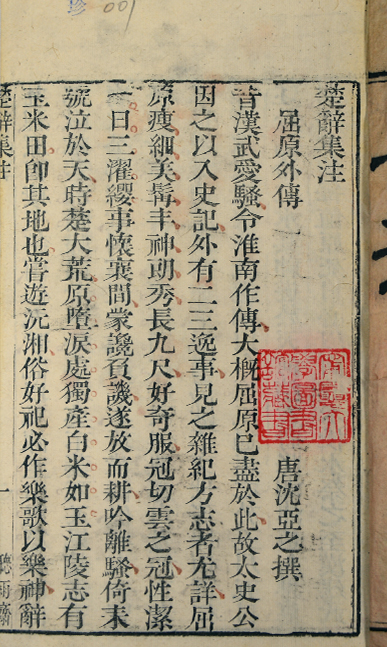 楚辭集注
屈原外傳
唐沈亞之撰
昔漢武愛騷令淮南作傳大概屈原已盡於此故太史公
因之以入史記外有二三逸事見之雜紀方志者尤詳屈
原瘦細美髯丰神朗秀長九尺好奇服冠切雲之冠性潔
一日三濯纓事懷襄間蒙讒負譏遂放而耕吟離騷倚耒
號泣於天時楚大荒原墮淚處獨產白米如玉江陵志有
玉米田卽其地也嘗遊沅湘俗好祀必作樂歌以樂神辭
楚辭集注
一
聽雨齋
001